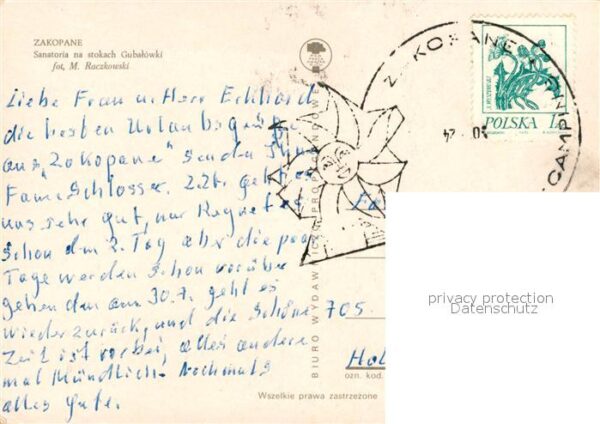 ZAKOPANE
Sanatoria na stokach Gubałówki
fot. M. Raczkowski
Liebe Frau u. Herr Eckhard
die besten Urlaubsgrüße
aus "Zakopane" sendet Ihnen
Fam. Schlosser. Z.Zt. geht es
uns sehr gut, nur Regnet es
schon den 3. Tag aber die paar
Tage werden schon vorüber
gehen den am 30.7. geht es
wieder zurück, und die schöne
Zeit ist vorbei, alles andere
mal Mündlich. Nochmals
alles Gute.
BIURO WYDAWNICZO PROPAGANDOWE
ZAKOPANE
CAMPING
POLSKA
705
Hol
ozn. kod.
Wszelkie prawa zastrzeżone
privacy protection
Datenschutz